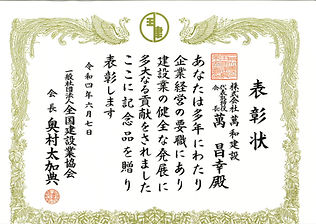 表彰状
株式会社 萬和建設
代表取締役会長
萬 昌幸殿
あなたは多年にわたり
企業経営の要職にあり
建設業の健全な発展に
多大な貢献をされました
ここに記念品を贈り
表彰します
令和四年六月七日
一般社団法人全国建設業協会
会長 奥村太加典